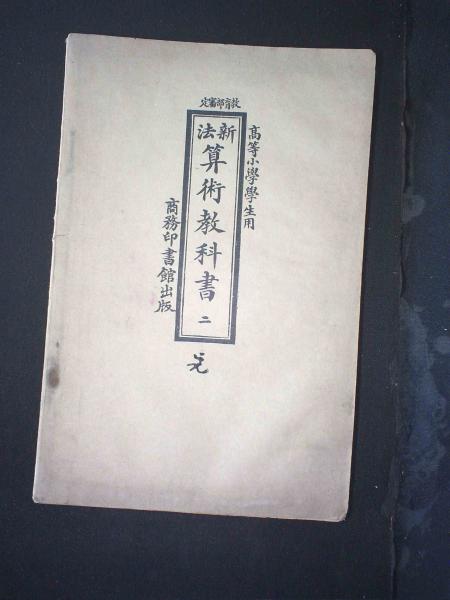 教育部審定
高等小學學生用
新法
算術教科書 二
商務印書館出版